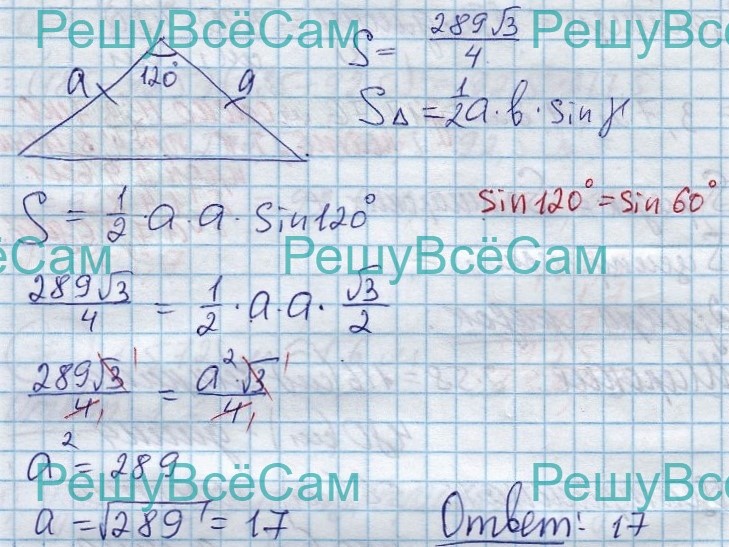 РешуВсёСам РешуВсёСам
a 120° a
S = 289√3 / 4
S△ = 1/2 a · b · sin γ
S = 1/2 · a · a · sin 120°
sin 120° = sin 60°
РешуВсёСам РешуВсёСам
289√3 / 4 = 1/2 · a · a · √3 / 2
289√3 1 / 4 1 = a² · √3 1 / 4 1
a² = 289
РешуВсёСам РешуВсёСам
a = √289 = 17
Ответ: 17